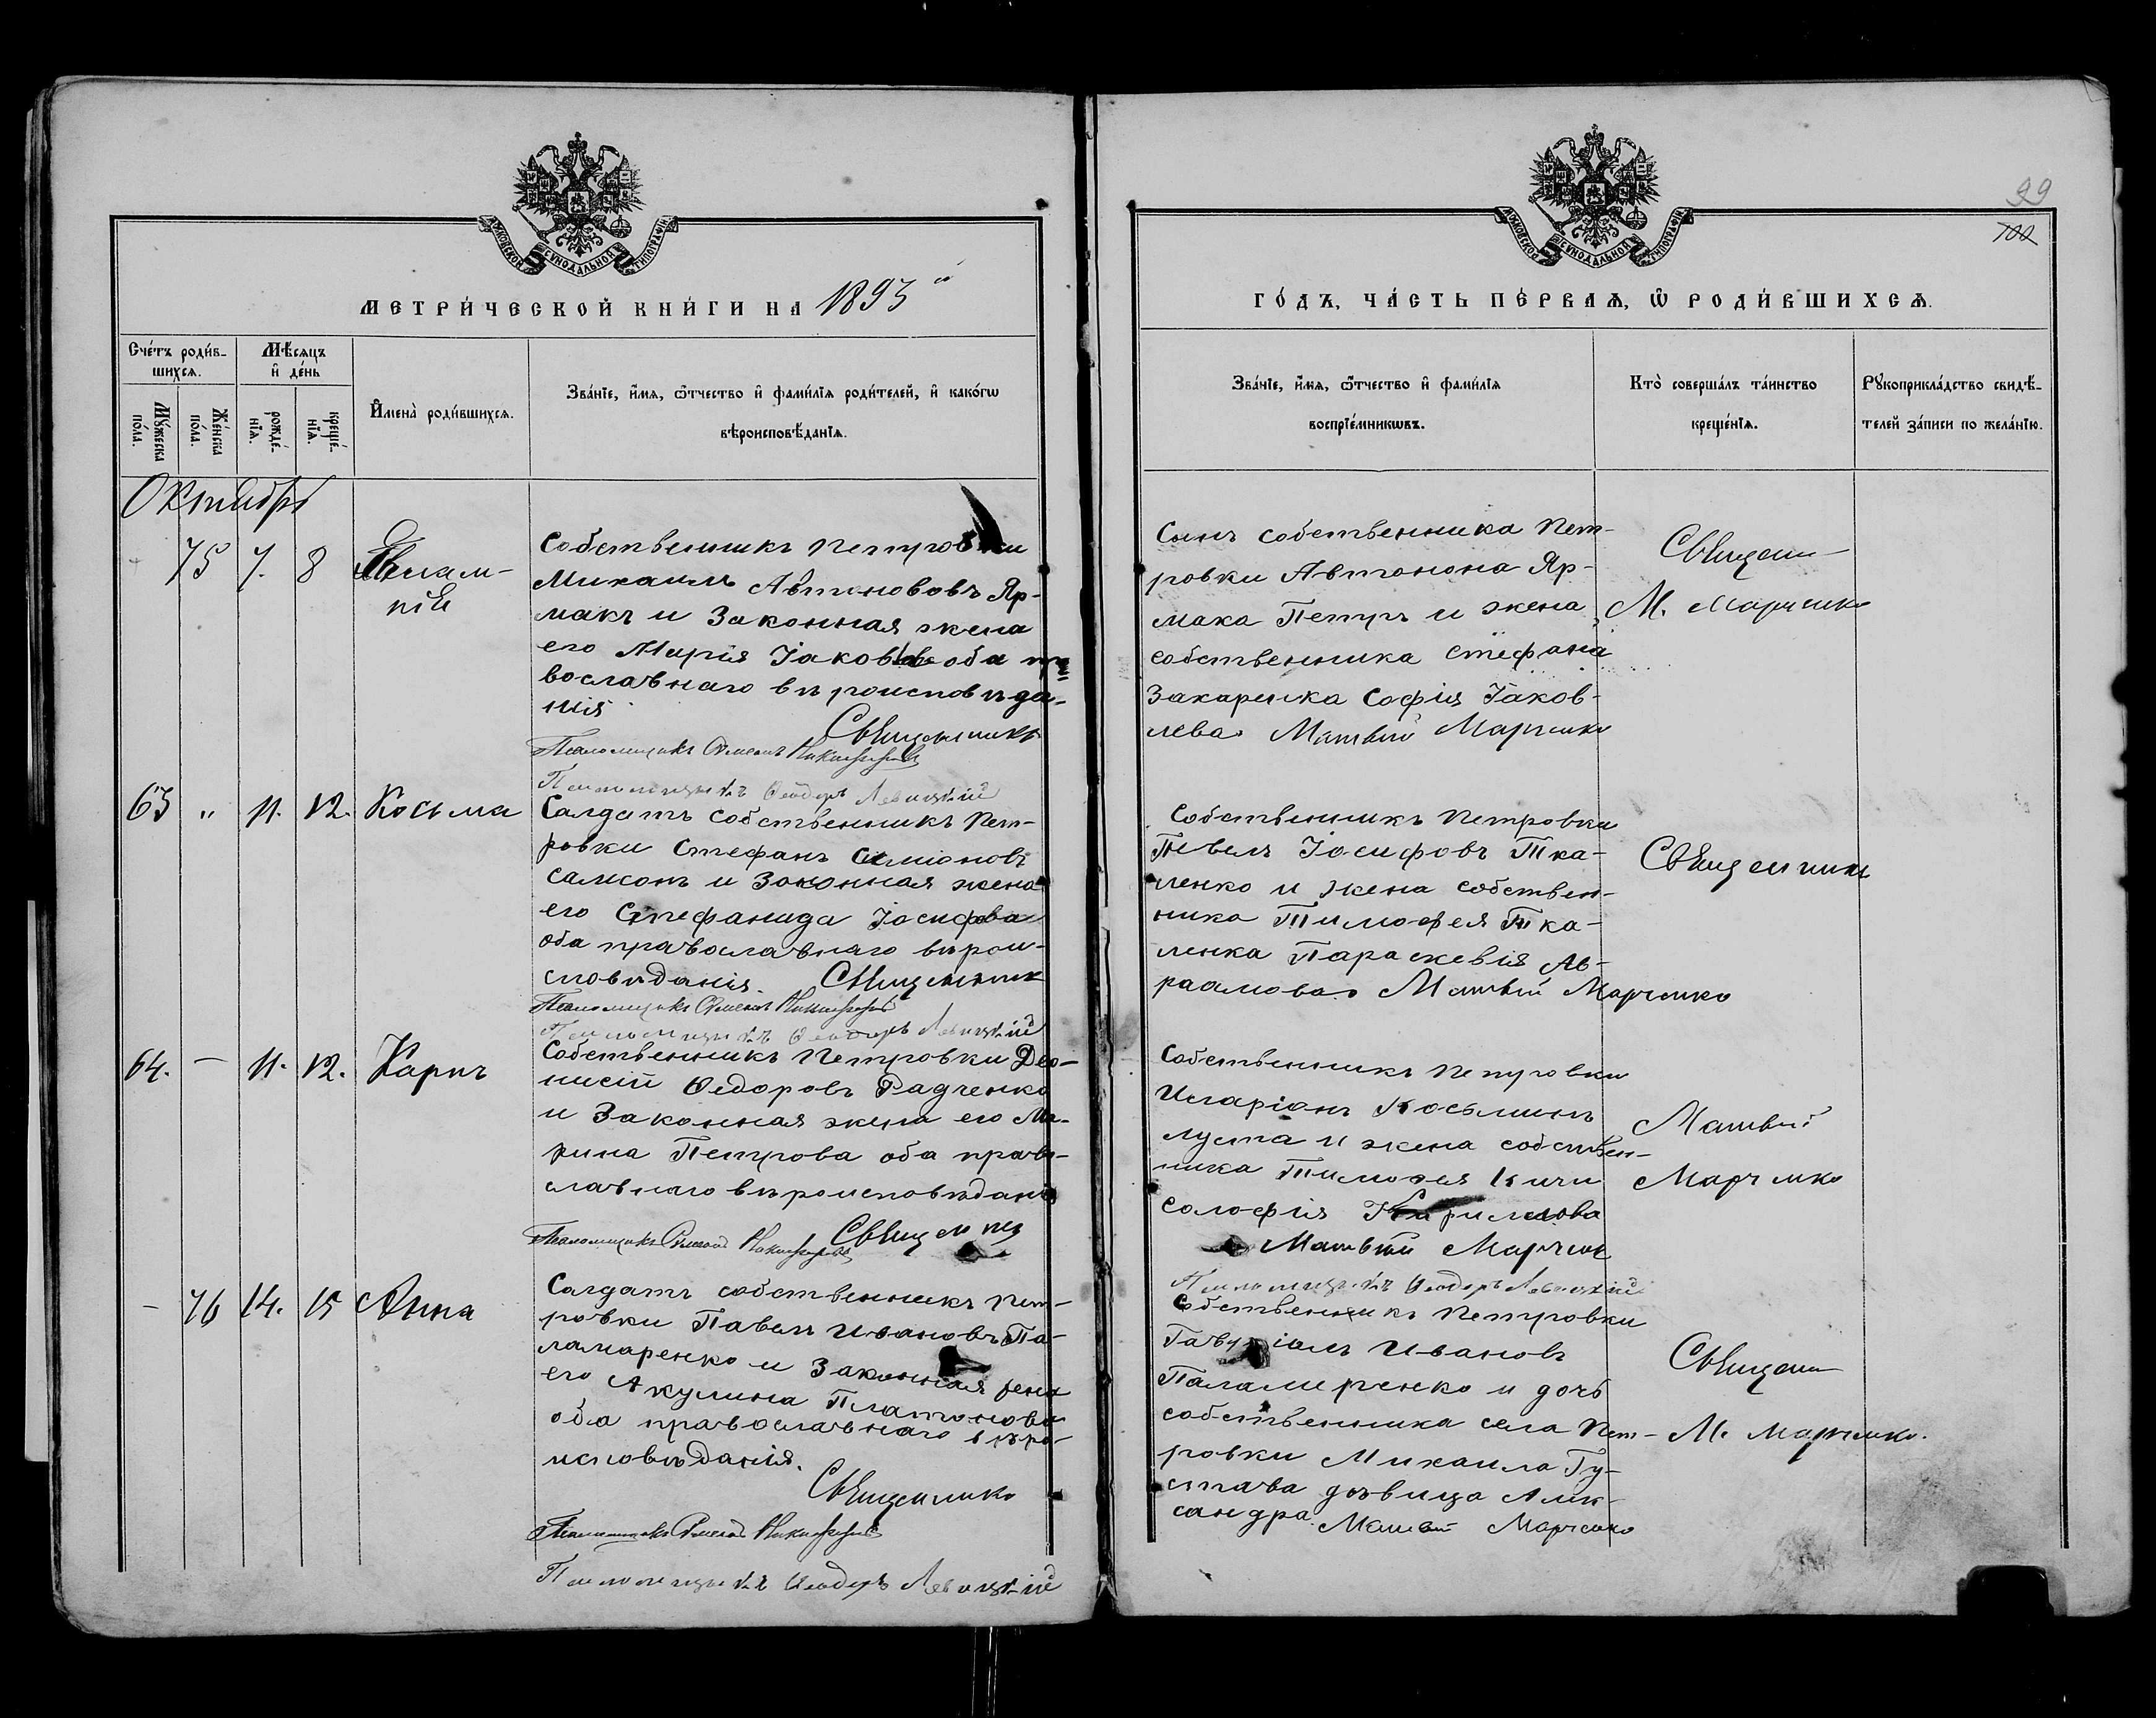 99
100
МОСКОВСКОЙ СѴНОДАЛЬНОЙ ТИПОГРАФІИ
МЕТРИ́ЧЕСКОЙ КНИ́ГИ НА 1893 й
Сче́тъ роди́в-
шихсѧ.
Мѣ́сѧцъ
и҆ де́нь
Мꙋ́жеска
по́ла.
Же́нска
по́ла.
рожде́-
нїѧ.
креще́-
нїѧ.
И҆мена̀ роди́вшихсѧ.
Зва́нїе, и҆́мѧ, ѻ҆́тчество и҆ фами́лїѧ роди́телей, и҆ како́гѡ
вѣроисповѣ́данїѧ.
Октябрь
75 7. 8
Евлам-
пія
Собственникъ Петровки
Михаилъ Автономовъ Яр-
макъ и законная жена
его Марія Іаковлева оба пра
вославнаго вѣроисповѣда-
нія
Священникъ
Псаломщикъ Никифоровъ
Псаломщикъ Ѳеодоръ Левицкій
63 " 11. 12. Косьма
Салдатъ собственникъ Пет-
ровки Стефанъ Симіоновъ
Самсонъ и законная жена
его Стефанида Іосифова
оба православнаго вѣрои-
сповѣданія. Священник
Псаломщикъ Никифоровъ
Псаломщикъ Ѳеодоръ Левицкій
64. – 11. 12. Карпъ
Собственникъ Петровки Део-
нисій Ѳедоровъ Радченко
и законная жена его Ма-
рина Петрова оба право-
славнаго вѣроисповѣданія
Священник
Псаломщикъ Никифоровъ
– 76 14. 15 Анна
Салдатъ собственникъ Пет-
ровки Павелъ Ивановъ Па-
ламаренко и законная жена
его Акулина Платонова
оба православнаго вѣро-
исповѣданія.
Священнико
Псаломщикъ Никифоровъ
Псаломщикъ Ѳеодоръ Левицкій
МОСКОВСКОЙ СѴНОДАЛЬНОЙ ТИПОГРАФІИ
ГО́ДЪ, ЧА́СТЬ ПЕ́РВАѦ, Ѽ РОДИ́ВШИХСѦ.
Зва́нїе, и҆́мѧ, ѻ҆́тчество и҆ фами́лїѧ
воспрїе́мникѡвъ.
Кто̀ соверша́лъ та́инство
креще́нїѧ.
Рꙋкоприкла́дство свидѣ́-
телей за́писи по жела́нїю.
Сынъ собственника Пет-
ровки Автонома Яр-
мака Петръ и жена
собственника Стефана
Захаренка Софія Іаков-
лева Матвій Марченко
Священ
М. Марченко
Собственникъ Петровки
Павелъ Іосифовъ Тка-
ленко и жена собствен-
ника Тимофея Тка-
ленка Параскевія Ав-
раамова Матвій Марченко
Священник
Собственникъ Петровки
Иларіонъ Косьминъ
Луста и жена собствен-
ника Тимофея Кичи
Соломія
Матвій Марченк
Матвій
Марченко
Псаломщикъ Ѳеодоръ Левицкій
Собственникъ Петровки
Гавріилъ Ивановъ
Паламаренко и дочь
собственника села Пет-
ровки Михаила Гу-
става дѣвица Алек-
сандра. Матвій Марченко
Священ
М. Марченко.